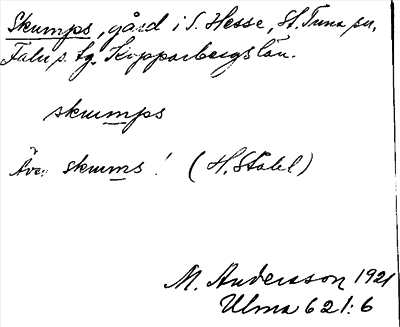 Skumps, gård i S. Hesse, St. Tuna sn,
Falu s. tg. Kopparbergs län.
skumps
Även skums! (H. Stahl)
M. Andersson 1921
Ulma 621:6